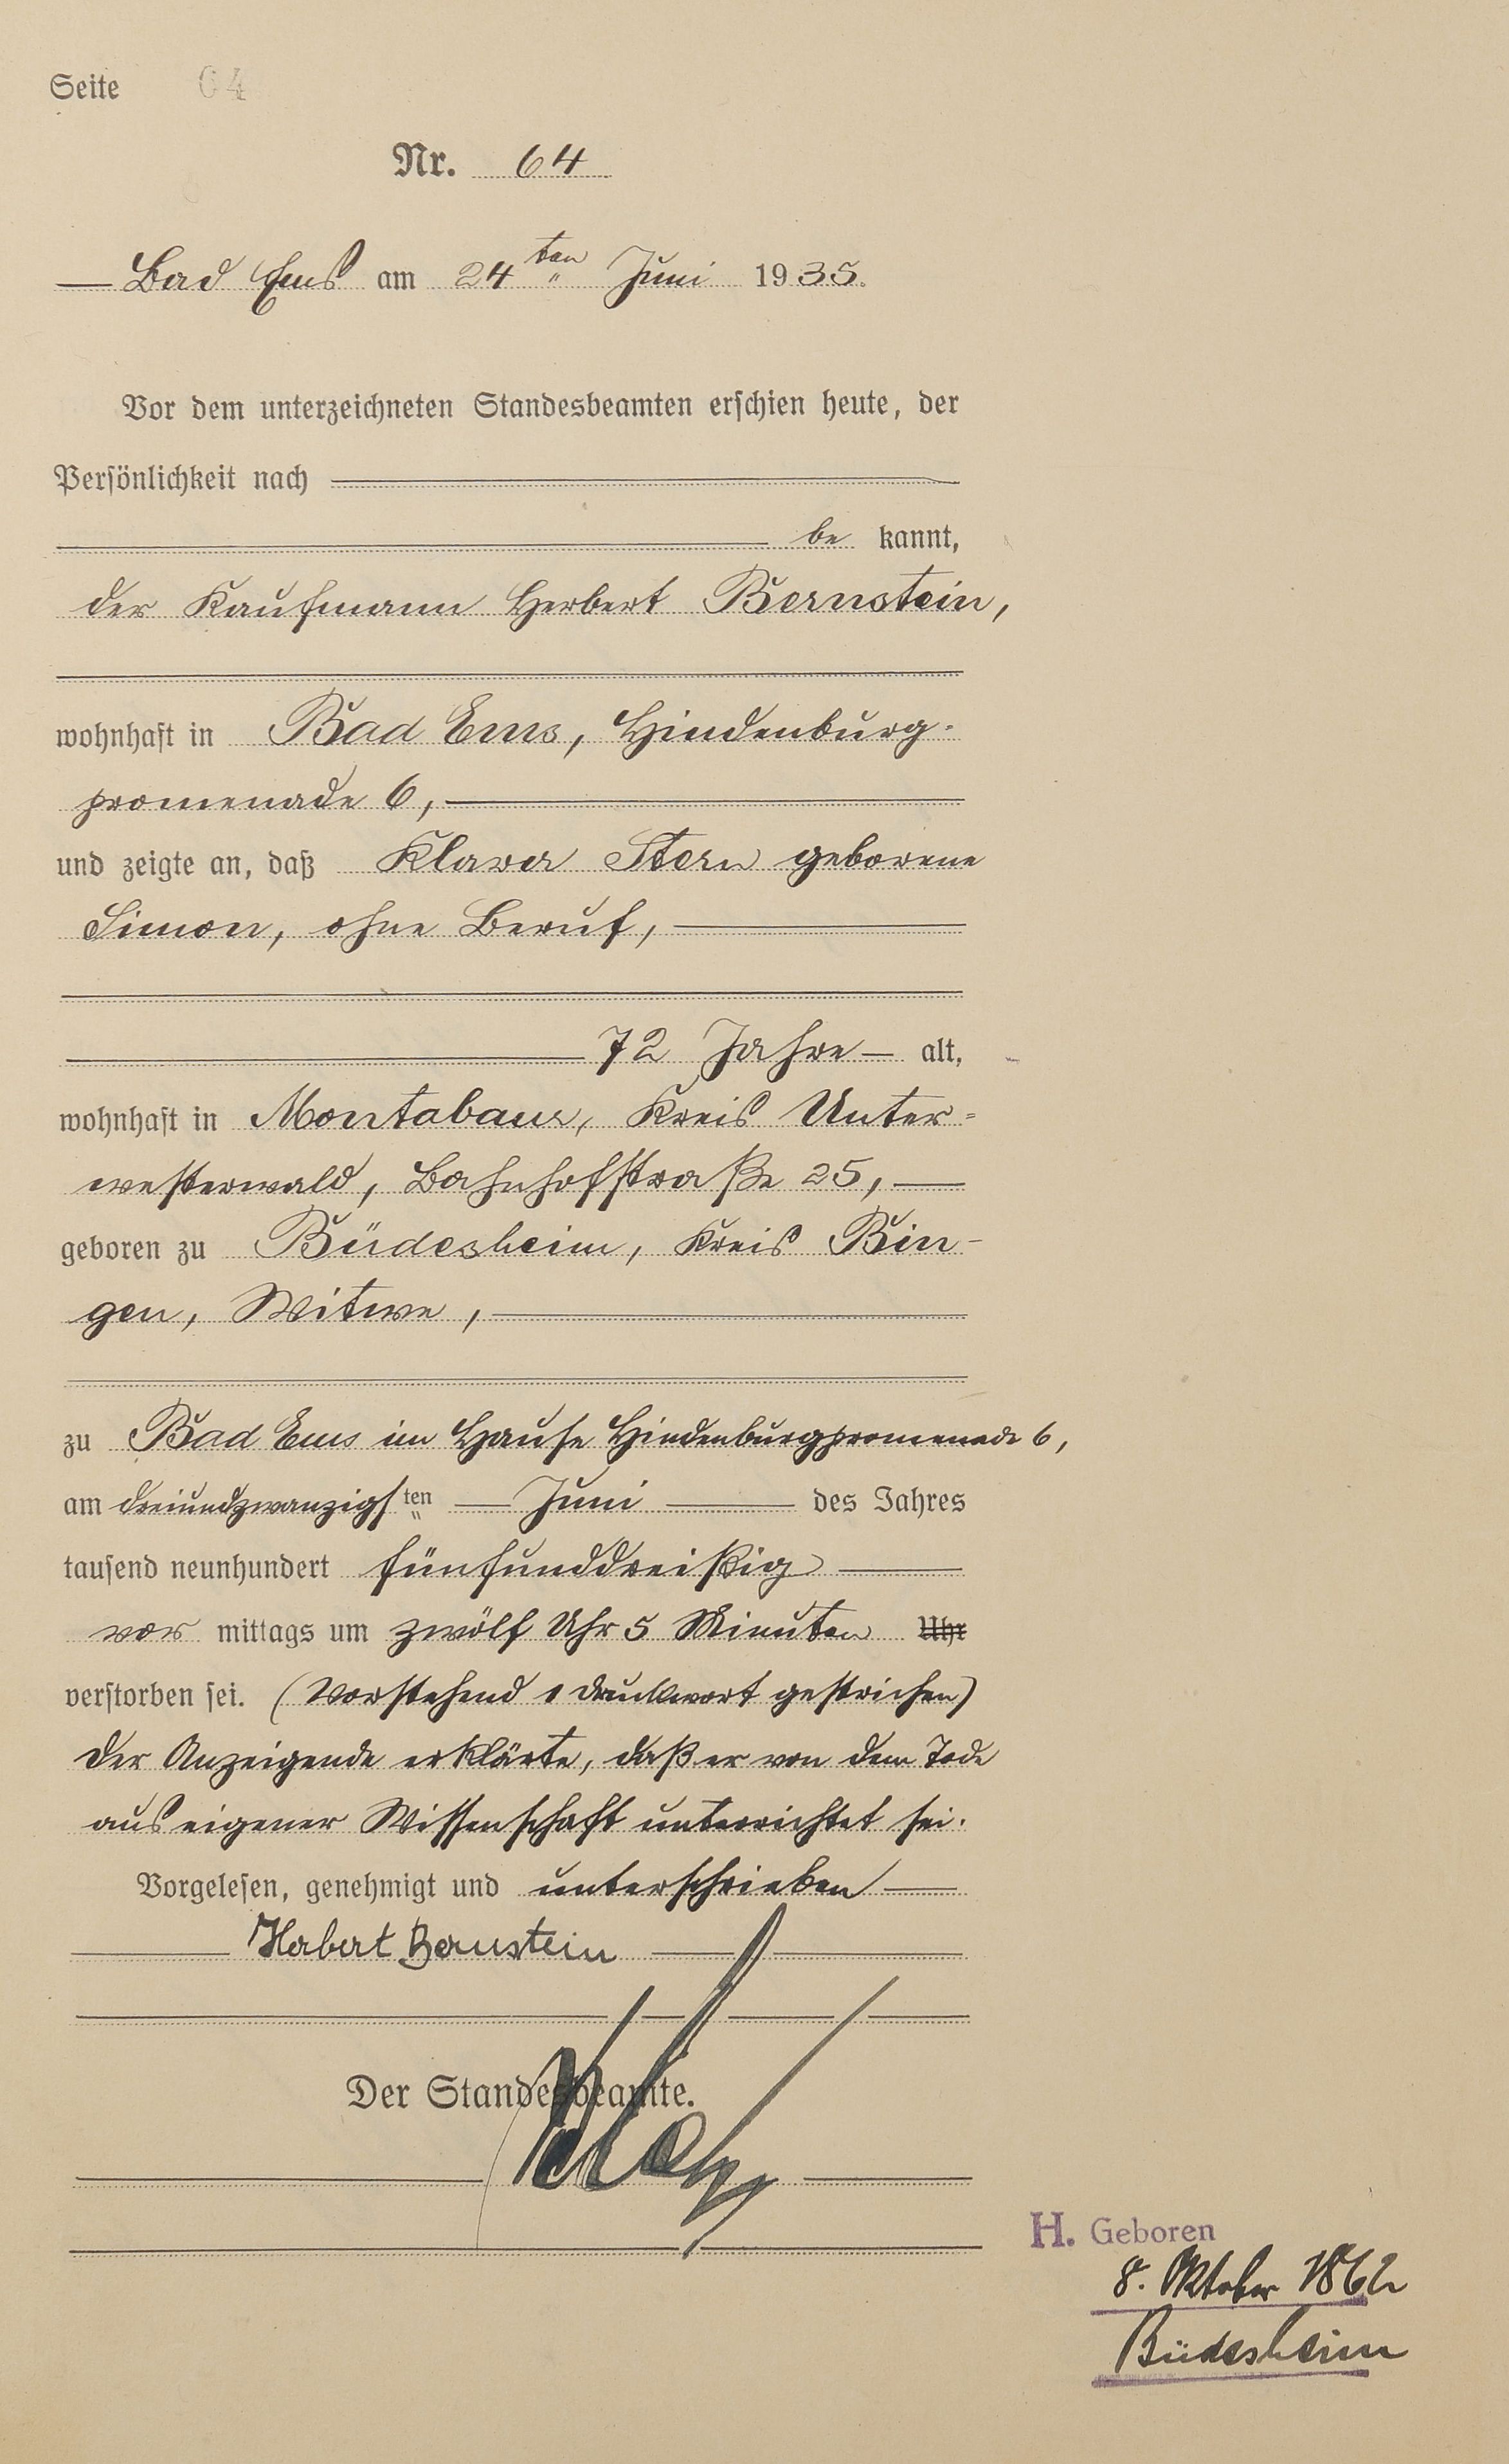 Seite 64
Nr. 64
Bad Ems am 24ten Juni 1935.
Vor dem unterzeichneten Standesbeamten erschien heute, der
Persönlichkeit nach
be kannt,
der Kaufmann Herbert Bernstein,
wohnhaft in Bad Ems, Hindenburg-
promenade 6,
und zeigte an, daß Klara Stern geborene
Simon, ohne Beruf,
72 Jahre alt,
wohnhaft in Montabaur, Kreis Unter=
westerwald, Bahnhofstraße 25,
geboren zu Büdesheim, Kreis Bin-
gen, Witwe,
zu Bad Ems im Hause Hindenburgpromenade 6,
am dreiundzwanzigsten Juni des Jahres
tausend neunhundert fünfunddreißig
vor mittags um zwölf Uhr 5 Minuten Uhr
verstorben sei. (Vorstehend 1 Druckwort gestrichen)
Der Anzeigende erklärte, daß er von dem Tode
aus eigener Wissenschaft unterrichtet sei.
Vorgelesen, genehmigt und unterschrieben
Herbert Bernstein
Der Standesbeamte.
H. Geboren
8. Oktober 1862
Büdesheim